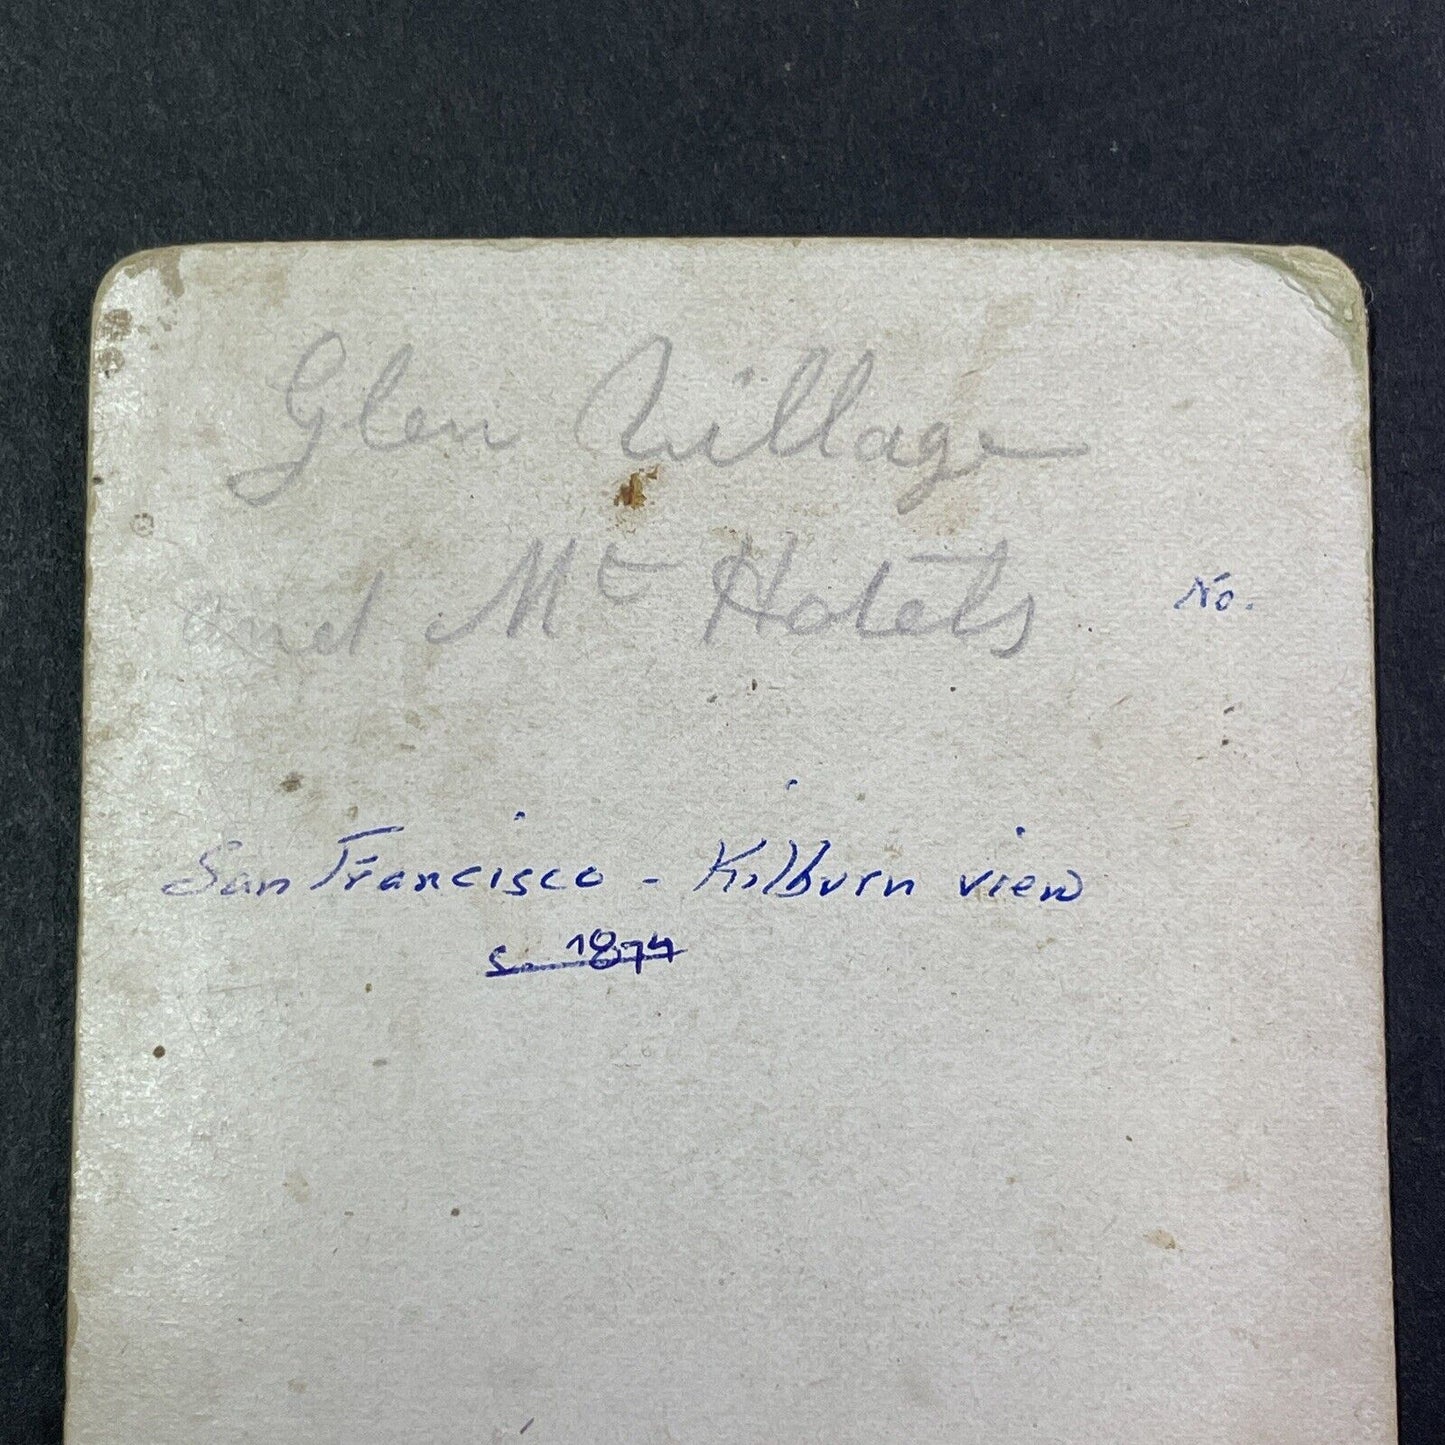 Glen Village
and Mt Hotels
No.
San Francisco - Kilburn view
c. 1874